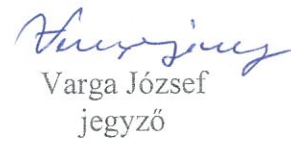 Varga József
jegyző